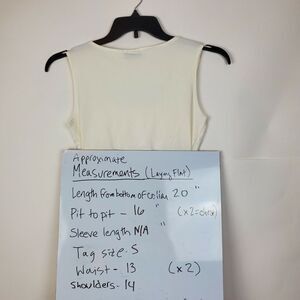 Approximate
Measurements (Laying Flat)
Length from bottom of collar 20 "
Pit to pit - 16 " (x2=chest)
Sleeve length N/A "
Tag size - S
Waist - 13 (x2)
shoulders - 14